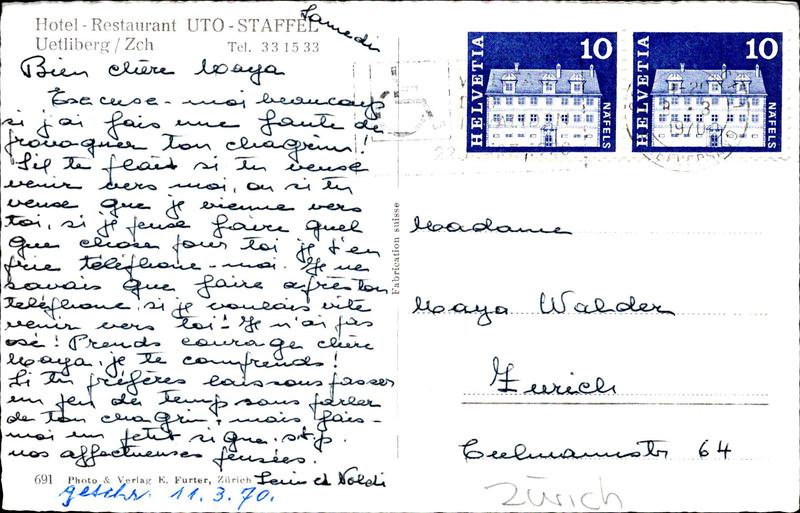 Hotel-Restaurant UTO-STAFFEL
Uetliberg/Zch Tel. 33 15 33
Samedi
Bien chère Maya
Excuse-moi beaucoup
si j'ai fais une faute de
provoquer ton chagrin!
S'il te plaît si tu veuse
venir vers moi, ou si tu
veuse que je vienne vers
toi, si je peuse faire quel
que chose pour toi je t'en
prie téléphone-moi. Je ne
savais que faire après ton
téléphone, si je voulais vite
venir vers toi! Je n'ai pas
osé! Prends courage chère
Maya, je te comprends!
Si tu préfères laissons passer
un peu de temps sans parler
de ton chagrin, mais fais-
moi un petit signe. s.t.p.
nos affectueuses pensées.
et Noldi
691 Photo & Verlag E. Furter, Zürich
geschr. 11.3.70.
Fabrication suisse
HELVETIA 10 NÄFELS
HELVETIA 10 NÄFELS
1970
Madame
Maya Walder
Zurich
64
Zürich